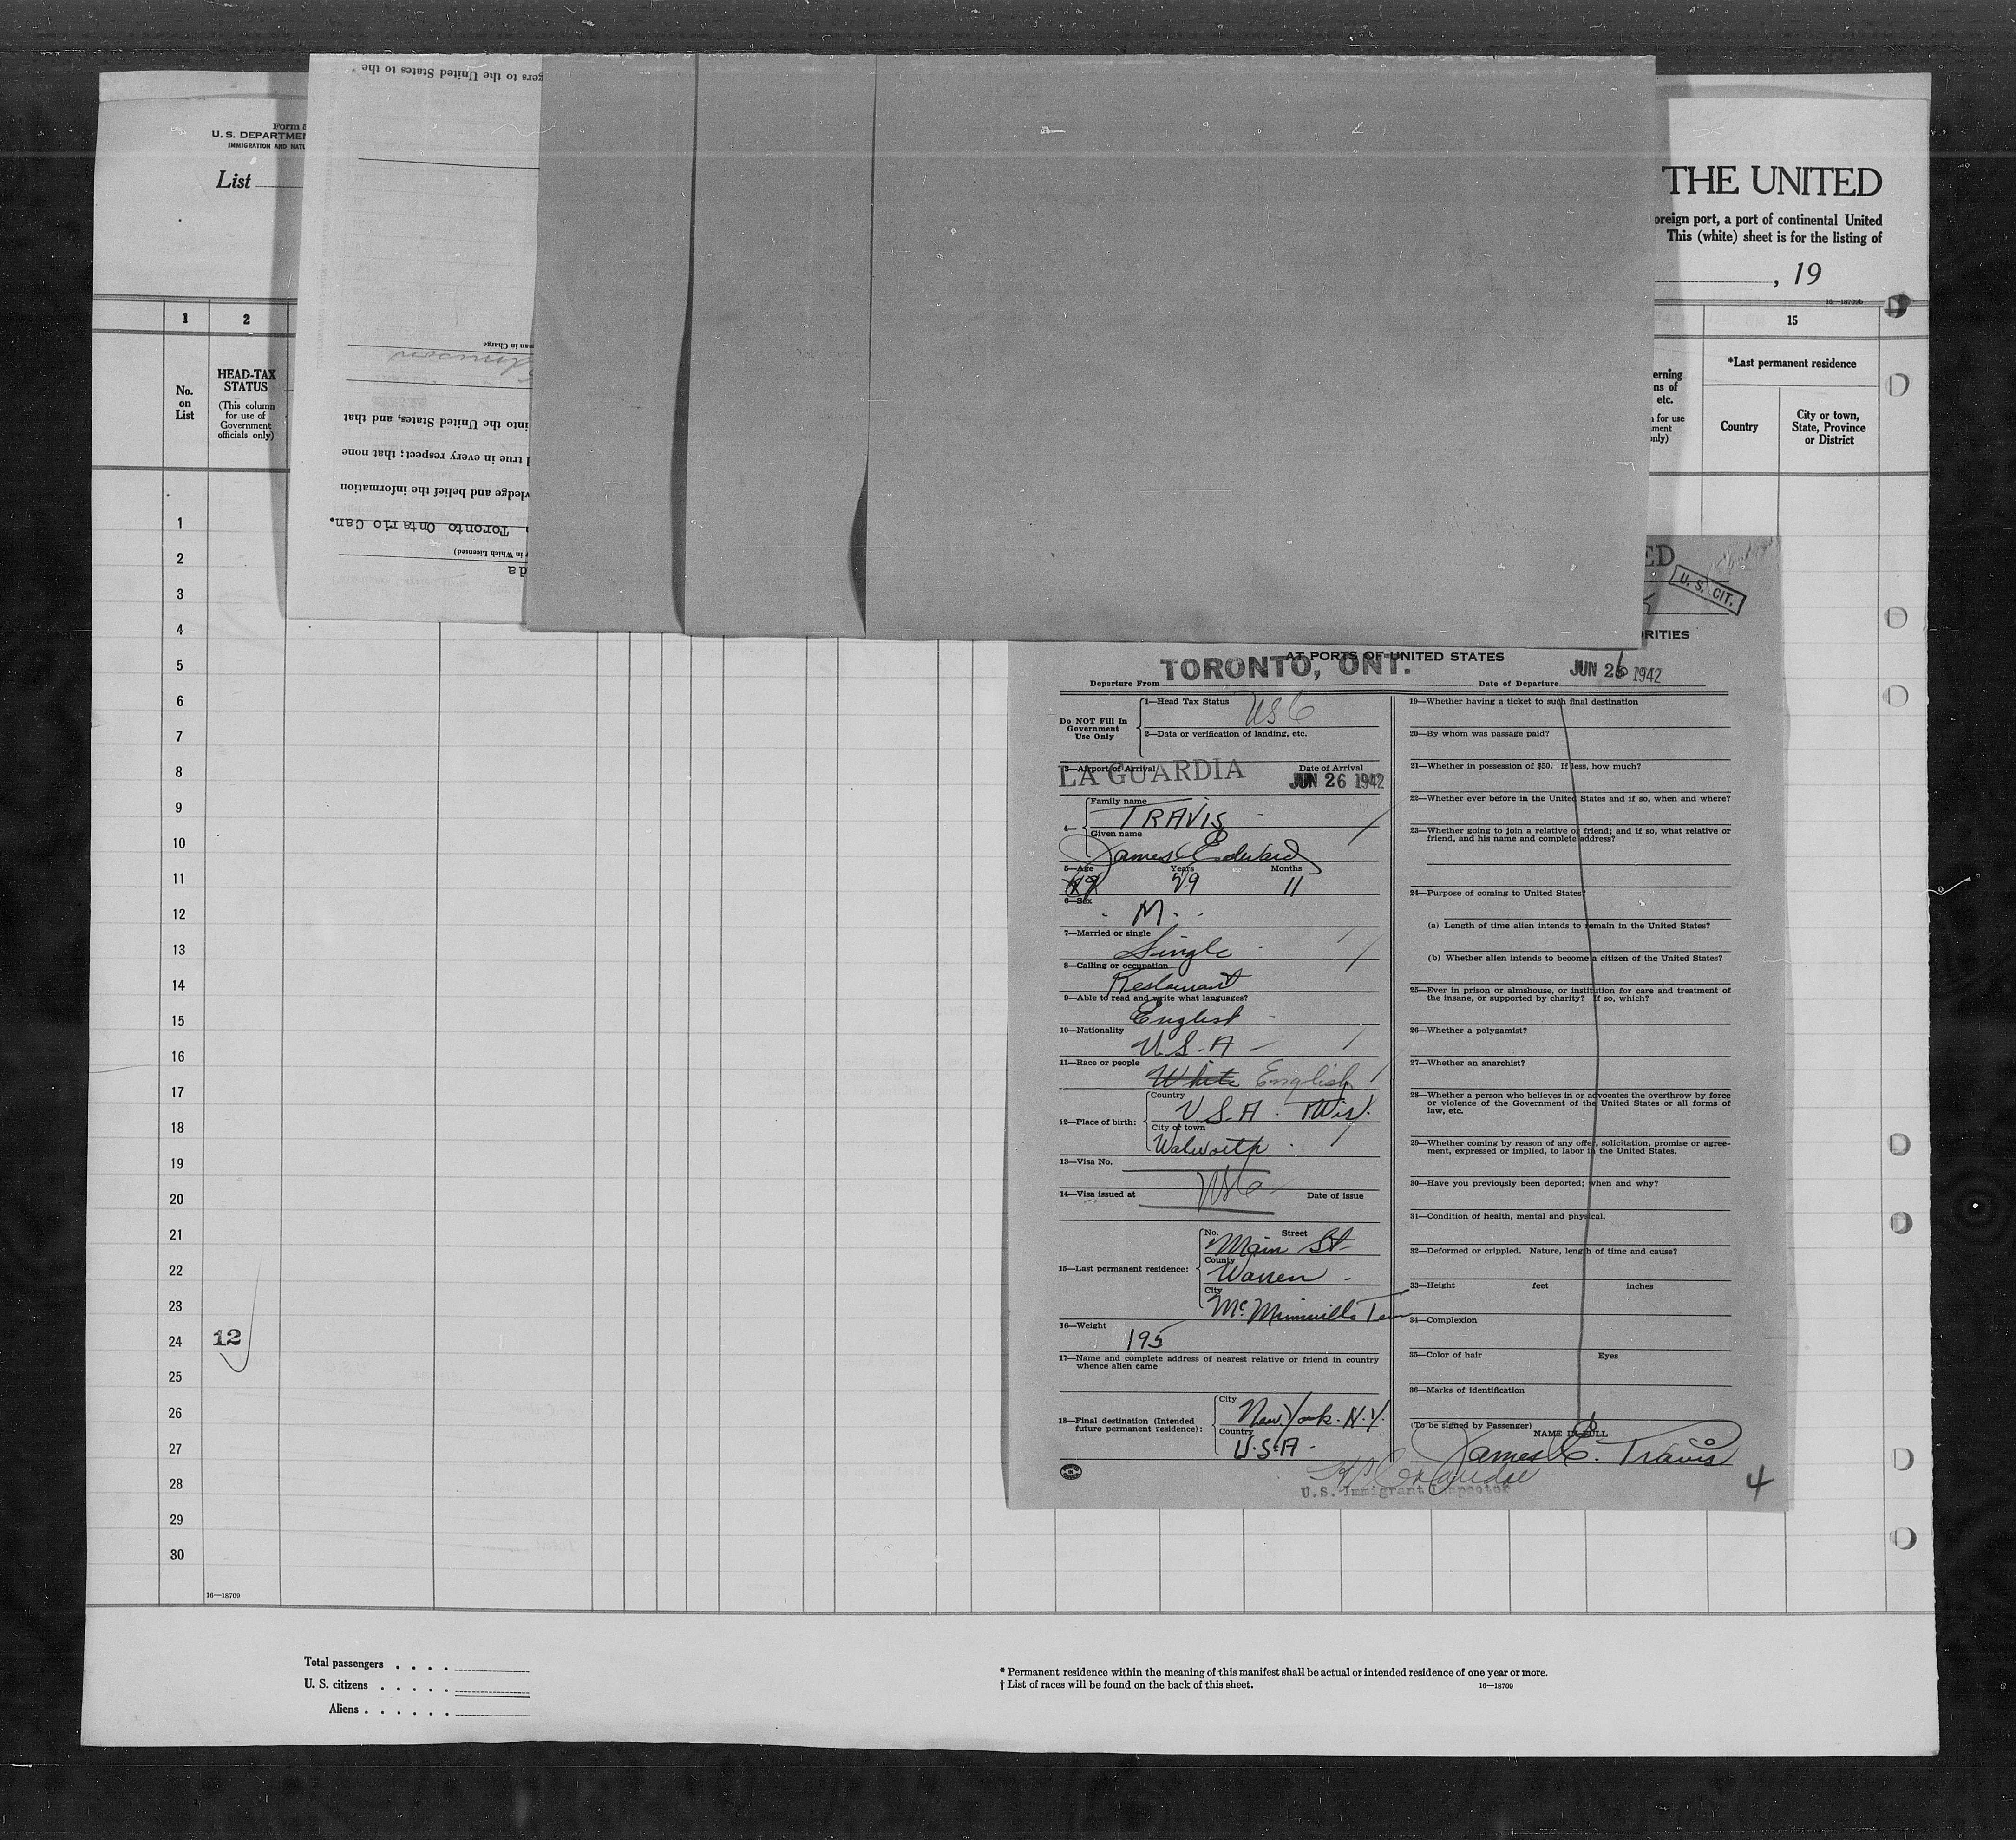 gers to the United States to the
Form
U. S. DEPARTMEN
IMMIGRATION AND NATU
List
THE UNITED
oreign port, a port of continental United
This (white) sheet is for the listing of
, 19
16—18709b
1
2
15
man in Charge
No.
on
List
HEAD-TAX
STATUS
(This column
for use of
Government
officials only)
into the United States, and that
d true in every respect; that none
wledge and belief the information
Toronto Ontario Can.
in Which Licensed)
da
erning
ns of
etc.
for use
ment
only)
*Last permanent residence
Country
City or town,
State, Province
or District
1
2
3
4
5
6
7
8
9
10
11
12
13
14
15
16
17
18
19
20
21
22
23
24
12
25
26
27
28
29
30
16—18709
ED
U. S. CIT.
RITIES
AT PORTS OF UNITED STATES
Departure From TORONTO, ONT.
Date of Departure JUN 26 1942
Do NOT Fill In
Government
Use Only
1—Head Tax Status USC
2—Data or verification of landing, etc.
3—Airport of Arrival LA GUARDIA
Date of Arrival JUN 26 1942
4—
Family name
TRAVIS
Given name
James Edward
5—Age Years Months
29 11
6—Sex
M.
7—Married or single
Single
8—Calling or occupation
Restaurant
9—Able to read and write what languages?
English
10—Nationality
U.S.A
11—Race or people
White English
12—Place of birth:
Country
U.S.A. Wis.
City or town
Walworth
13—Visa No.
USC
14—Visa issued at Date of issue
15—Last permanent residence:
No. Street
Main St.
County
Warren
City
McMinnville Tenn
16—Weight
195
17—Name and complete address of nearest relative or friend in country
whence alien came
18—Final destination (Intended
future permanent residence):
City
New York. N.Y.
Country
U.S.A.
19—Whether having a ticket to such final destination
20—By whom was passage paid?
21—Whether in possession of $50. If less, how much?
22—Whether ever before in the United States and if so, when and where?
23—Whether going to join a relative or friend; and if so, what relative or
friend, and his name and complete address?
24—Purpose of coming to United States?
(a) Length of time alien intends to remain in the United States?
(b) Whether alien intends to become a citizen of the United States?
25—Ever in prison or almshouse, or institution for care and treatment of
the insane, or supported by charity? If so, which?
26—Whether a polygamist?
27—Whether an anarchist?
28—Whether a person who believes in or advocates the overthrow by force
or violence of the Government of the United States or all forms of
law, etc.
29—Whether coming by reason of any offer, solicitation, promise or agree-
ment, expressed or implied, to labor in the United States.
30—Have you previously been deported; when and why?
31—Condition of health, mental and physical.
32—Deformed or crippled. Nature, length of time and cause?
33—Height feet inches
34—Complexion
35—Color of hair Eyes
36—Marks of identification
(To be signed by Passenger)
NAME IN FULL
James E. Travis
U.S. Immigrant Inspector
4
Total passengers . . . .
U. S. citizens . . . . .
Aliens . . . . . .
* Permanent residence within the meaning of this manifest shall be actual or intended residence of one year or more.
† List of races will be found on the back of this sheet.
16—18709